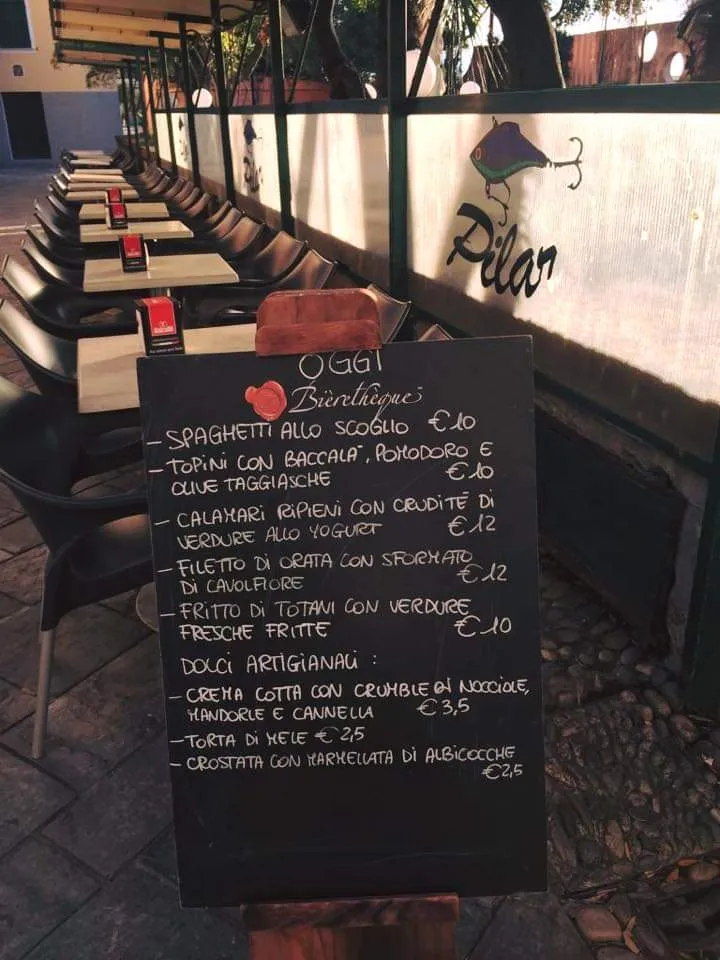 Pilar
OGGI
Bièrethèque
- SPAGHETTI ALLO SCOGLIO €10
- TOPINI CON BACCALÀ, POMODORO E
OLIVE TAGGIASCHE €10
- CALAMARI RIPIENI CON CRUDITÉ DI
VERDURE ALLO YOGURT €12
- FILETTO DI ORATA CON SFORMATO
DI CAVOLFIORE €12
- FRITTO DI TOTANI CON VERDURE
FRESCHE FRITTE €10
DOLCI ARTIGIANALI :
- CREMA COTTA CON CRUMBLE DI NOCCIOLE,
MANDORLE E CANNELLA €3,5
- TORTA DI MELE €2,5
- CROSTATA CON MARMELLATA DI ALBICOCCHE
€2,5